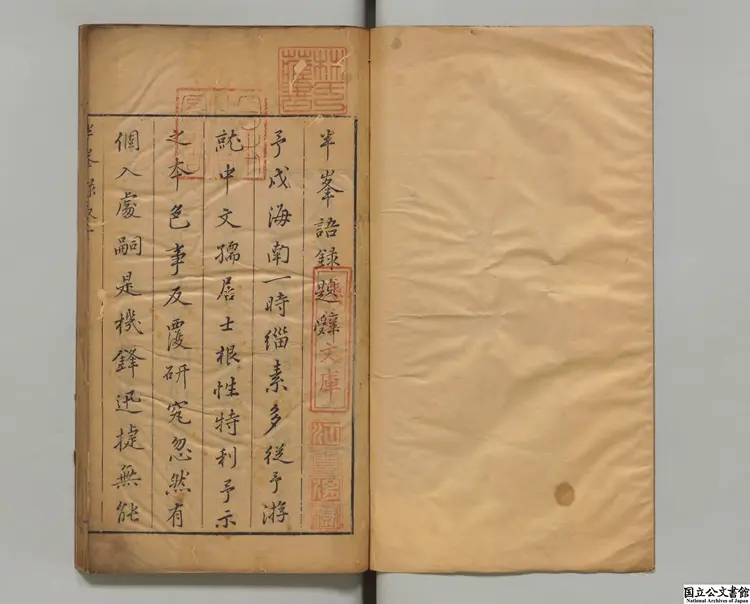 半峯語録題辭
予戍海南一時緇素多從予游
就中文孺居士根性特利予示
之本色事反覆研究忽然有
個入處嗣是機鋒迅捷無能
林氏藏書
文庫
國立公文書館
National Archives of Japan